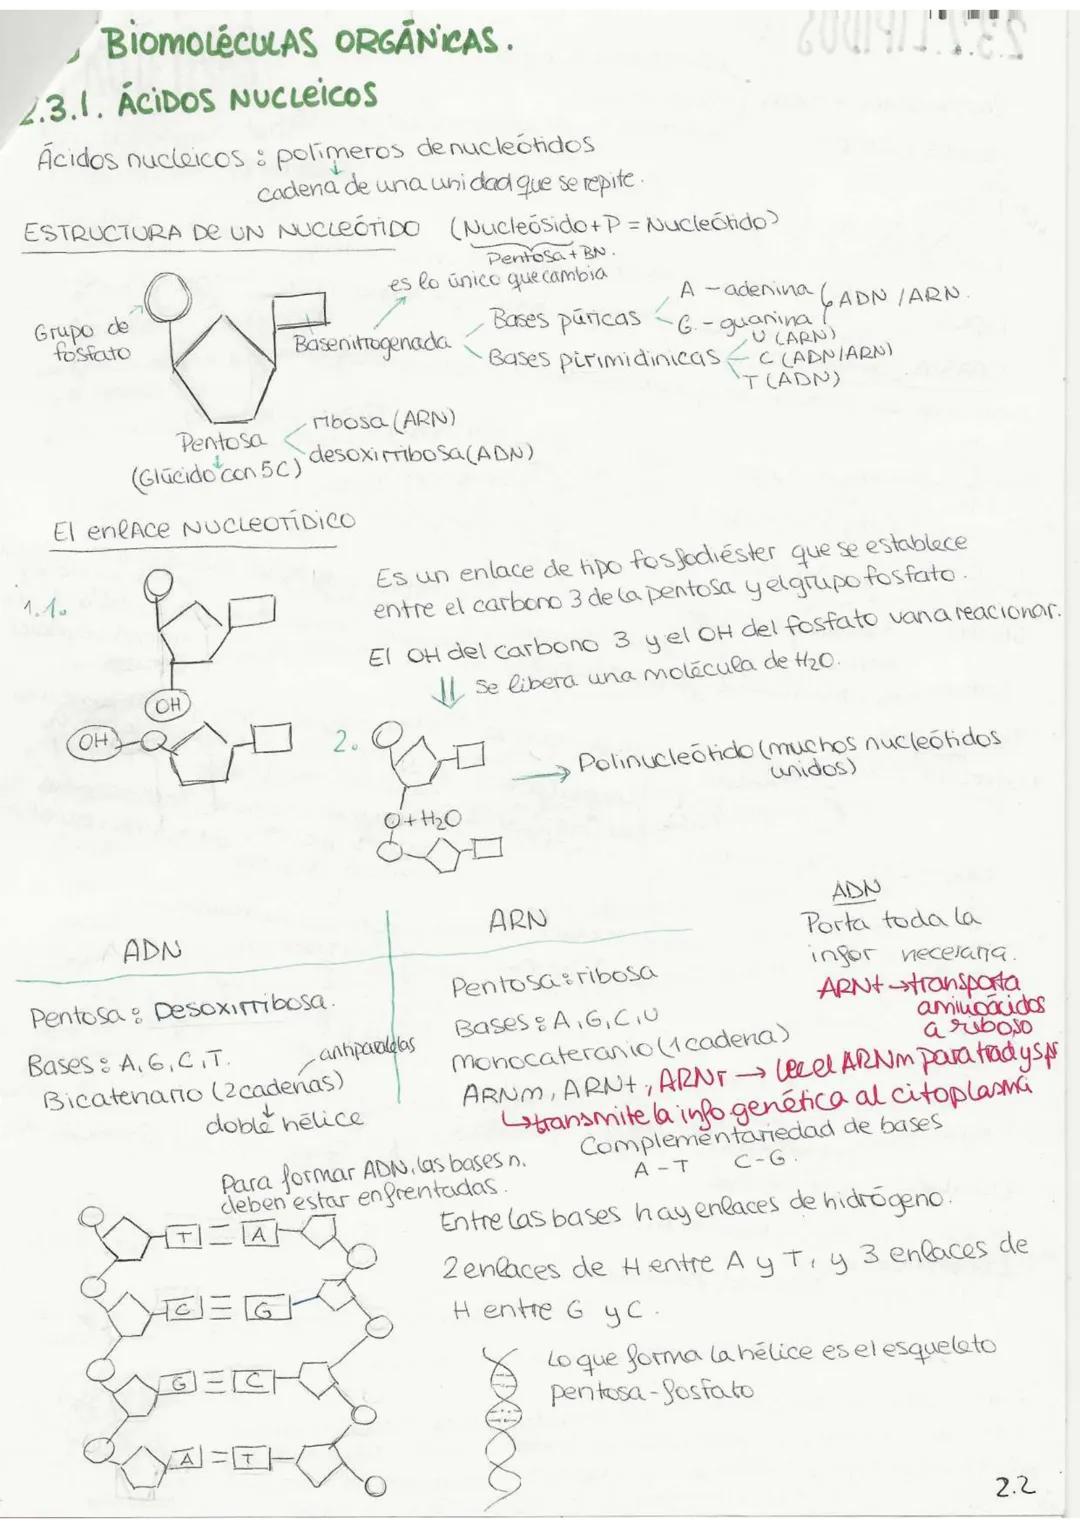 BIOMOLÉCULAS ORGÁNICAS.
2.3.1. ÁCIDOS NUCLEICOS
Ácidos nucleicos : polímeros de nucleótidos
cadena de una unidad que se repite.
ESTRUCTURA DE UN NUCLEÓTIDO (Nucleósido + P = Nucleótido)
Pentosa + BN.
es lo único que cambia
Grupo de
fosfato
Base nitrogenada
Bases púricas
A - adenina
G. - guanina
ADN / ARN.
Bases pirimidinicas
U (ARN)
C (ADN/ARN)
T (ADN)
Pentosa
(Glúcido con 5C)
ribosa (ARN)
desoxirribosa (ADN)
El enlace NUCLEOTÍDICO
1.1.
Es un enlace de tipo fosfodiéster que se establece
entre el carbono 3 de la pentosa y el grupo fosfato.
El OH del carbono 3 y el OH del fosfato van a reacionar.
⇓ Se libera una molécula de H2O.
OH
OH
2.
→ Polinucleótido (muchos nucleótidos
unidos)
O + H2O
ADN
Pentosa : Desoxirribosa.
Bases : A, G, C, T.
antiparalelas
Bicatenario (2 cadenas)
doble hélice
ARN
Pentosa : ribosa
Bases : A, G, C, U
Monocateranio (1 cadena)
ARNm, ARNt, ARNr → lee el ARNm para trad y sp
↳ transmite la info genética al citoplasma
ADN
Porta toda la
infor necesaria.
ARNt → transporta
aminoácidos
a riboso
Complementariedad de bases
A - T C - G.
Para formar ADN, las bases n.
deben estar enfrentadas.
Entre las bases hay enlaces de hidrógeno.
2 enlaces de H entre A y T, y 3 enlaces de
H entre G y C.
T = A
C ≡ G
G ≡ C
A = T
Lo que forma la hélice es el esqueleto
pentosa - fosfato
2.2